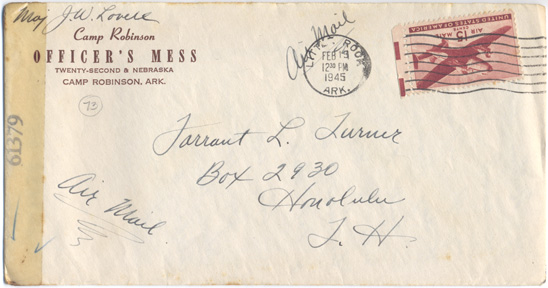 Maj J.W. Lovell
Camp Robinson
OFFICER'S MESS
TWENTY-SECOND & NEBRASKA
CAMP ROBINSON, ARK.
73
Air Mail
LITTLE ROCK
FEB 19
12 30 PM
1945
ARK.
UNITED STATES OF AMERICA
AIR MAIL
15 CENTS 15
61379
Farrant L. Turner
Box 2930
Honolulu
T. H.
Air Mail